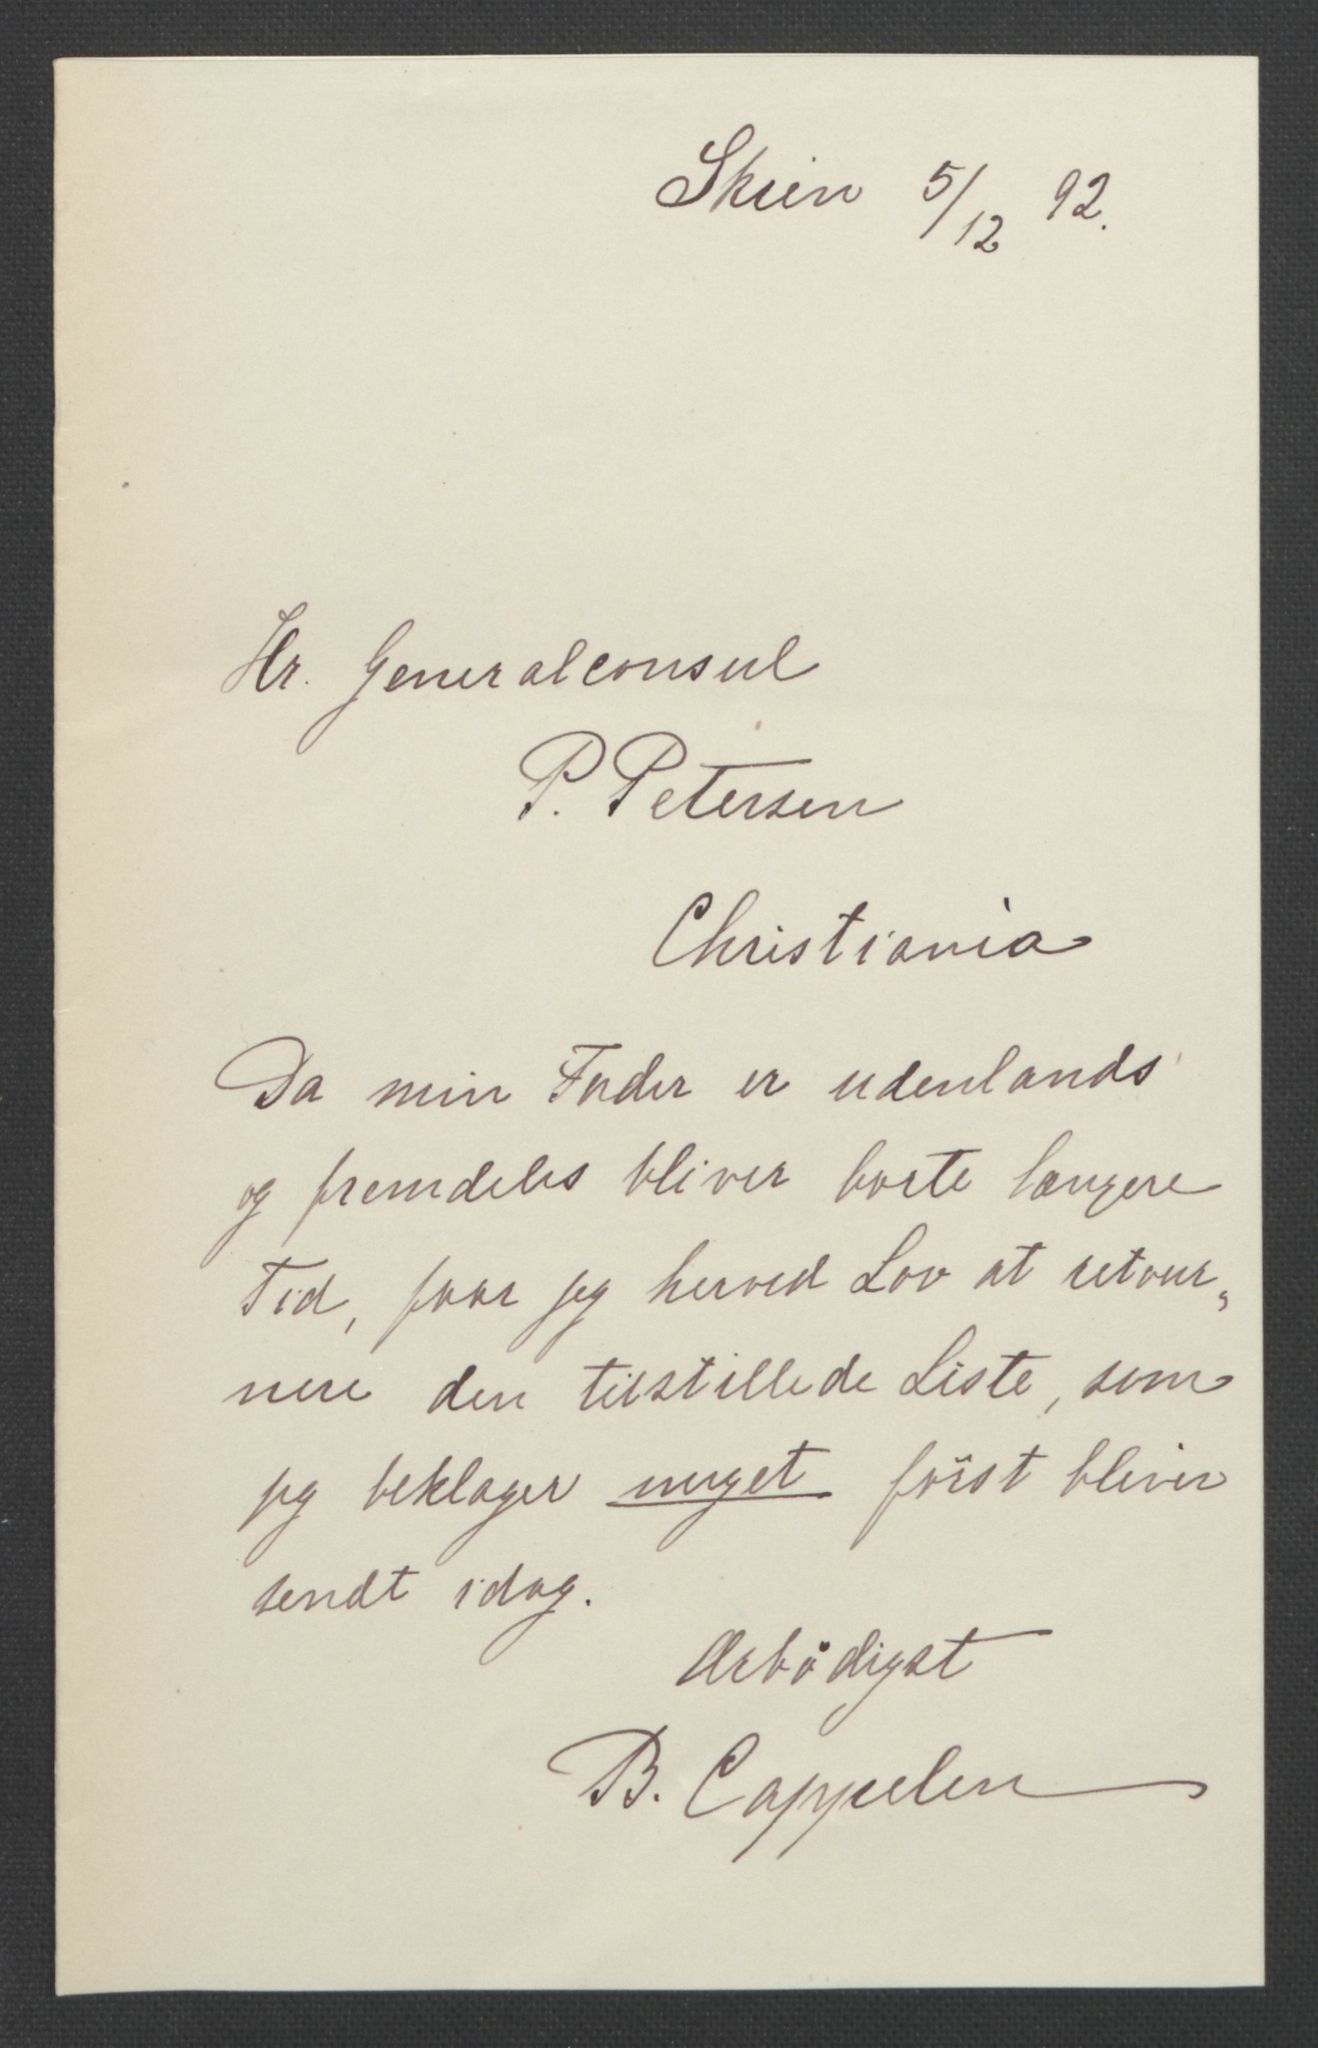 Skien 5/12 92.
Hr. Generalconsul
P. Petersen
Christiania
Da min Fader er udenlands
og fremdeles bliver borte længere
Tid, faar jeg herved Lov at retour„
nere den tilstillede Liste, som
jeg beklager meget først bliver
sendt idag.
Ærbødigst
B. Cappelen